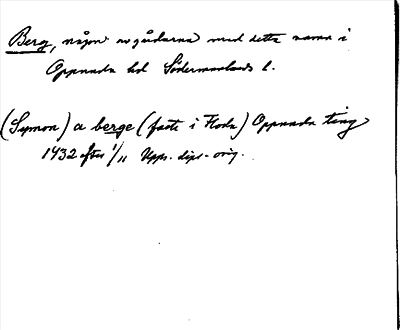 Berg, någon av gårdarna med detta namn i
Oppunda hd Södermanlands l.
(Symon) a berge (faste i Floda) Oppunda ting
1432 efter 1/11 Upps. dipl. orig.